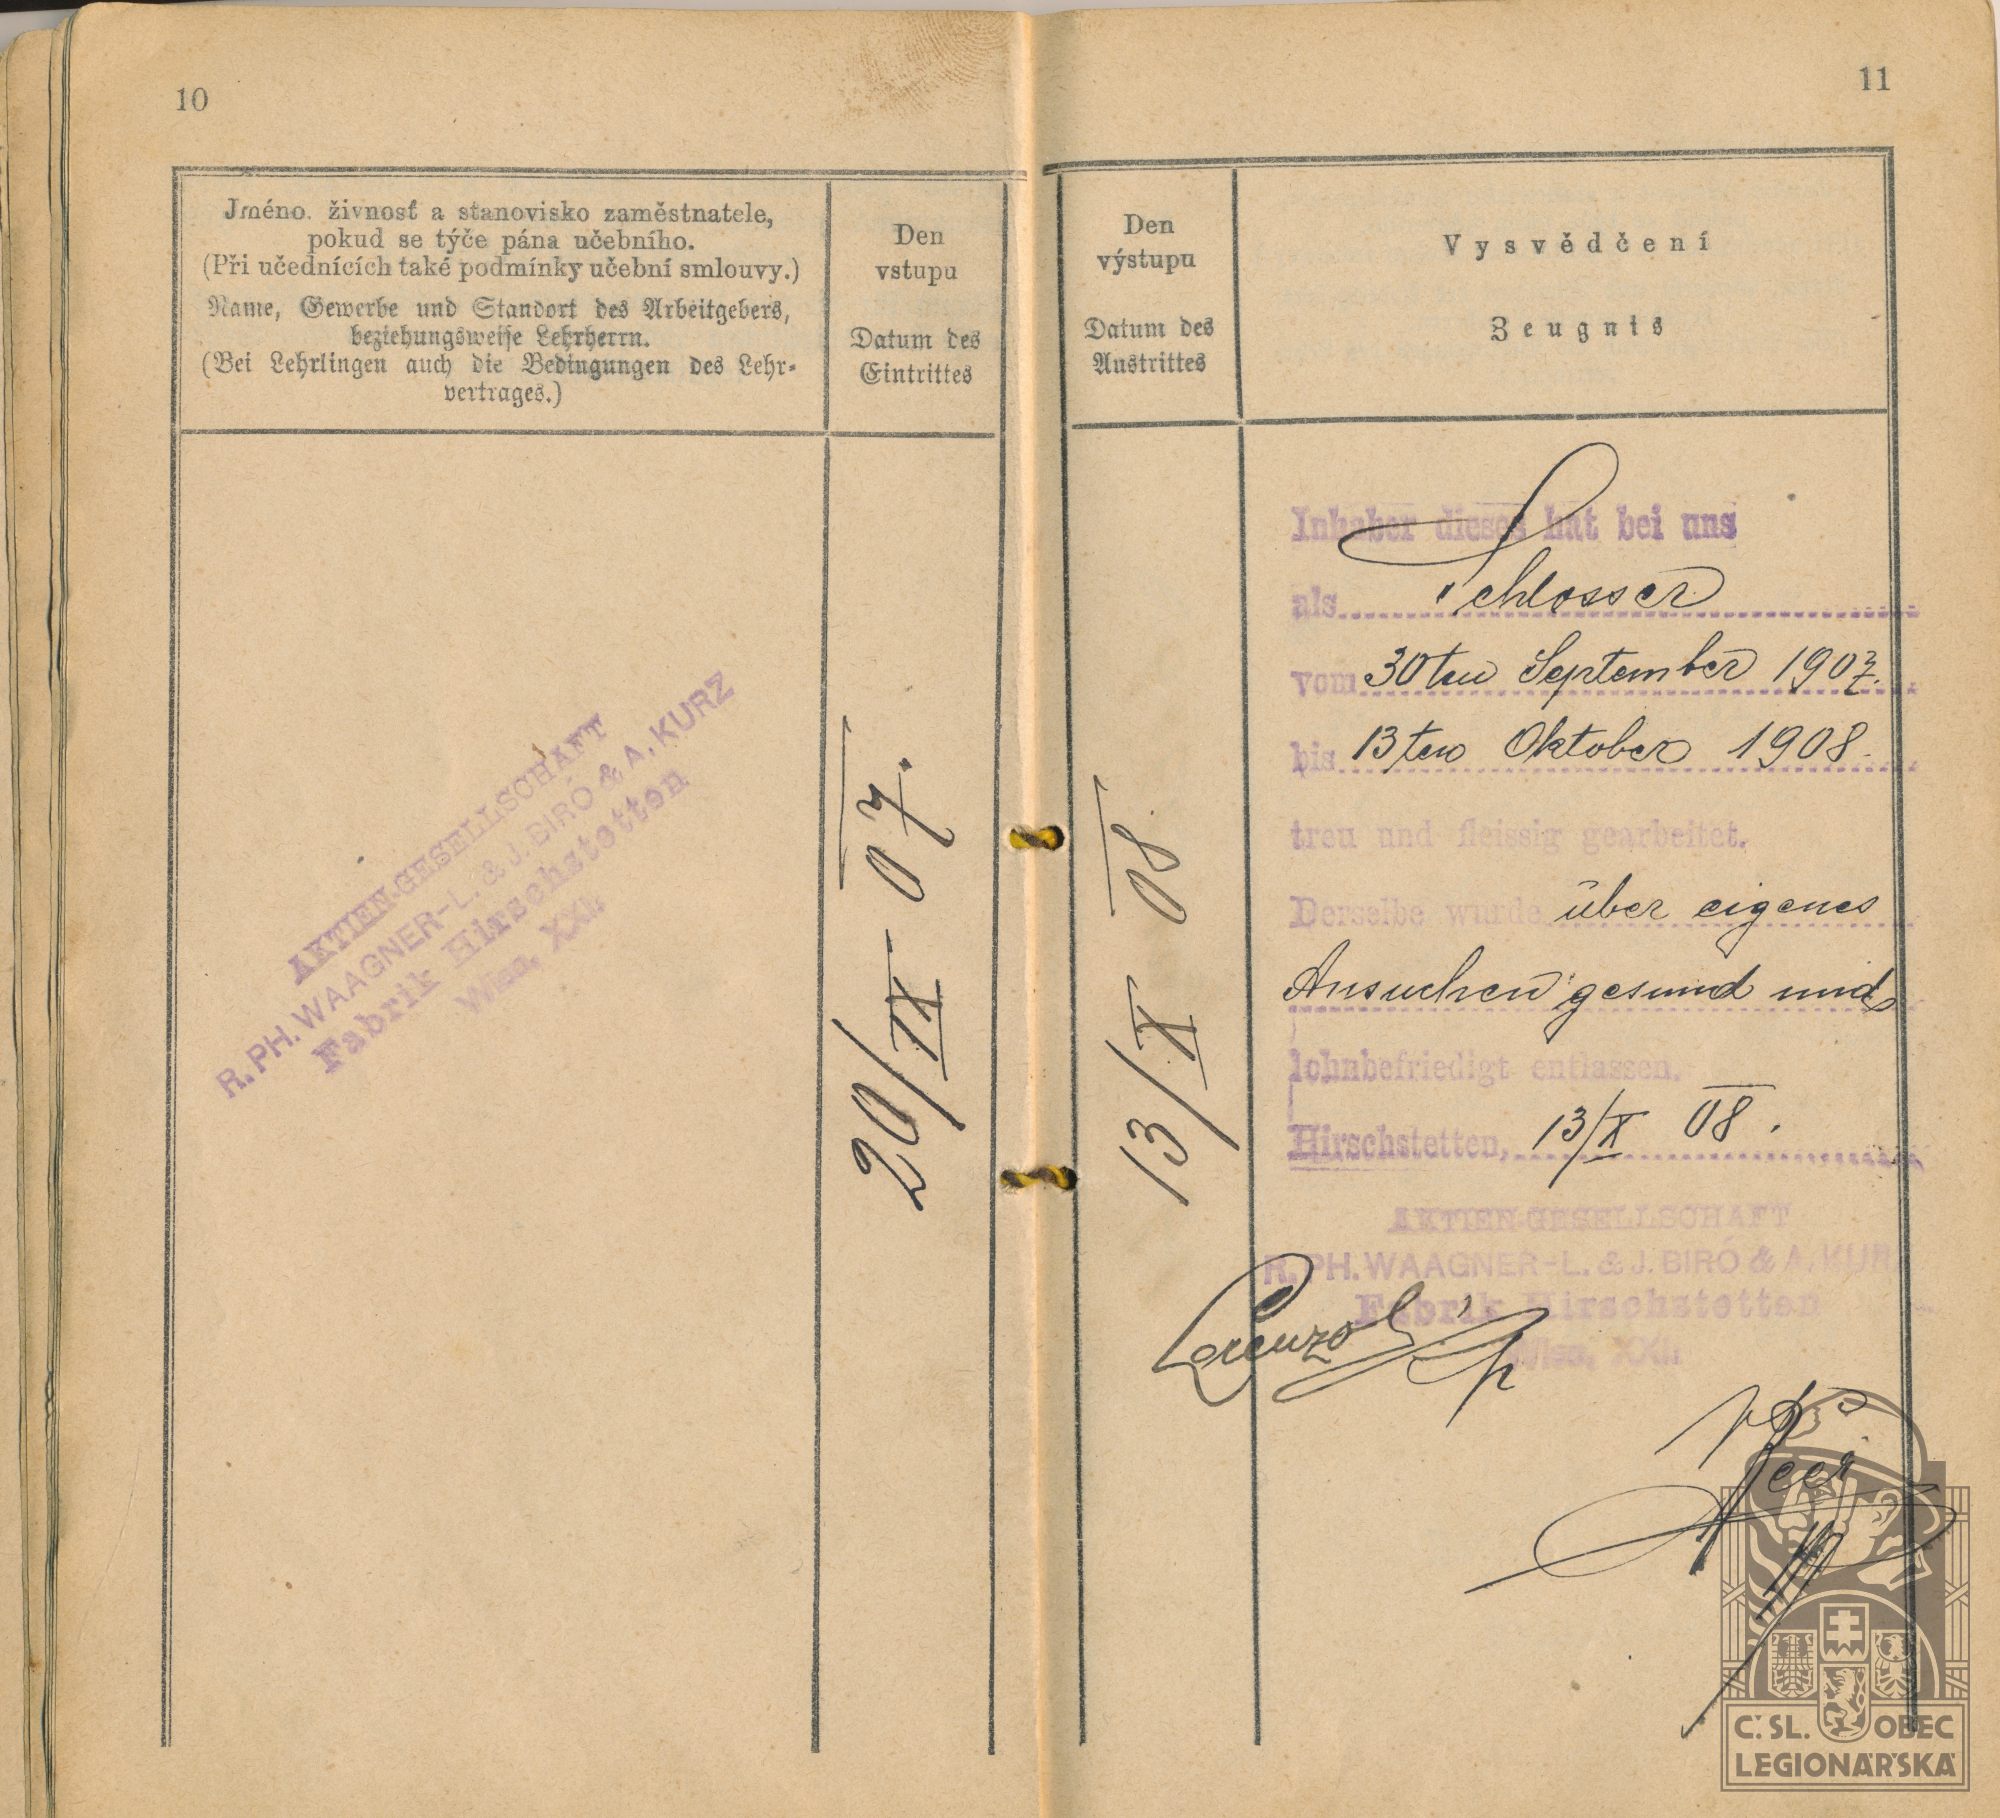 10
Jméno, živnosť a stanovisko zaměstnatele,
pokud se týče pána učebního.
(Při učednících také podmínky učební smlouvy.)
Name, Gewerbe und Standort des Arbeitgebers,
beziehungsweise Lehrherrn.
(Bei Lehrlingen auch die Bedingungen des Lehr-
vertrages.)
Den
vstupu
Datum des
Eintrittes
AKTIEN-GESELLSCHAFT
R. PH. WAAGNER-L. & J. BIRÓ & A. KURZ
Fabrik Hirschstetten
Wien, XXI.
20/IX 07.
11
Den
výstupu
Datum des
Austrittes
Vysvědčení
Zeugnis
13/X 08.
Inhaber dieses hat bei uns
als Schlosser
vom 30ten September 1907.
bis 13ten Oktober 1908.
treu und fleissig gearbeitet.
Derselbe wurde über eigenes
Ansuchen gesund und
lohnbefriedigt entlassen.
Hirschstetten, 13/X 08.
AKTIEN-GESELLSCHAFT
R. PH. WAAGNER-L. & J. BIRÓ & A. KUR
Fabrik Hirschstetten
Wien, XXI.
Č. SL. OBEC
LEGIONÁŘSKÁ